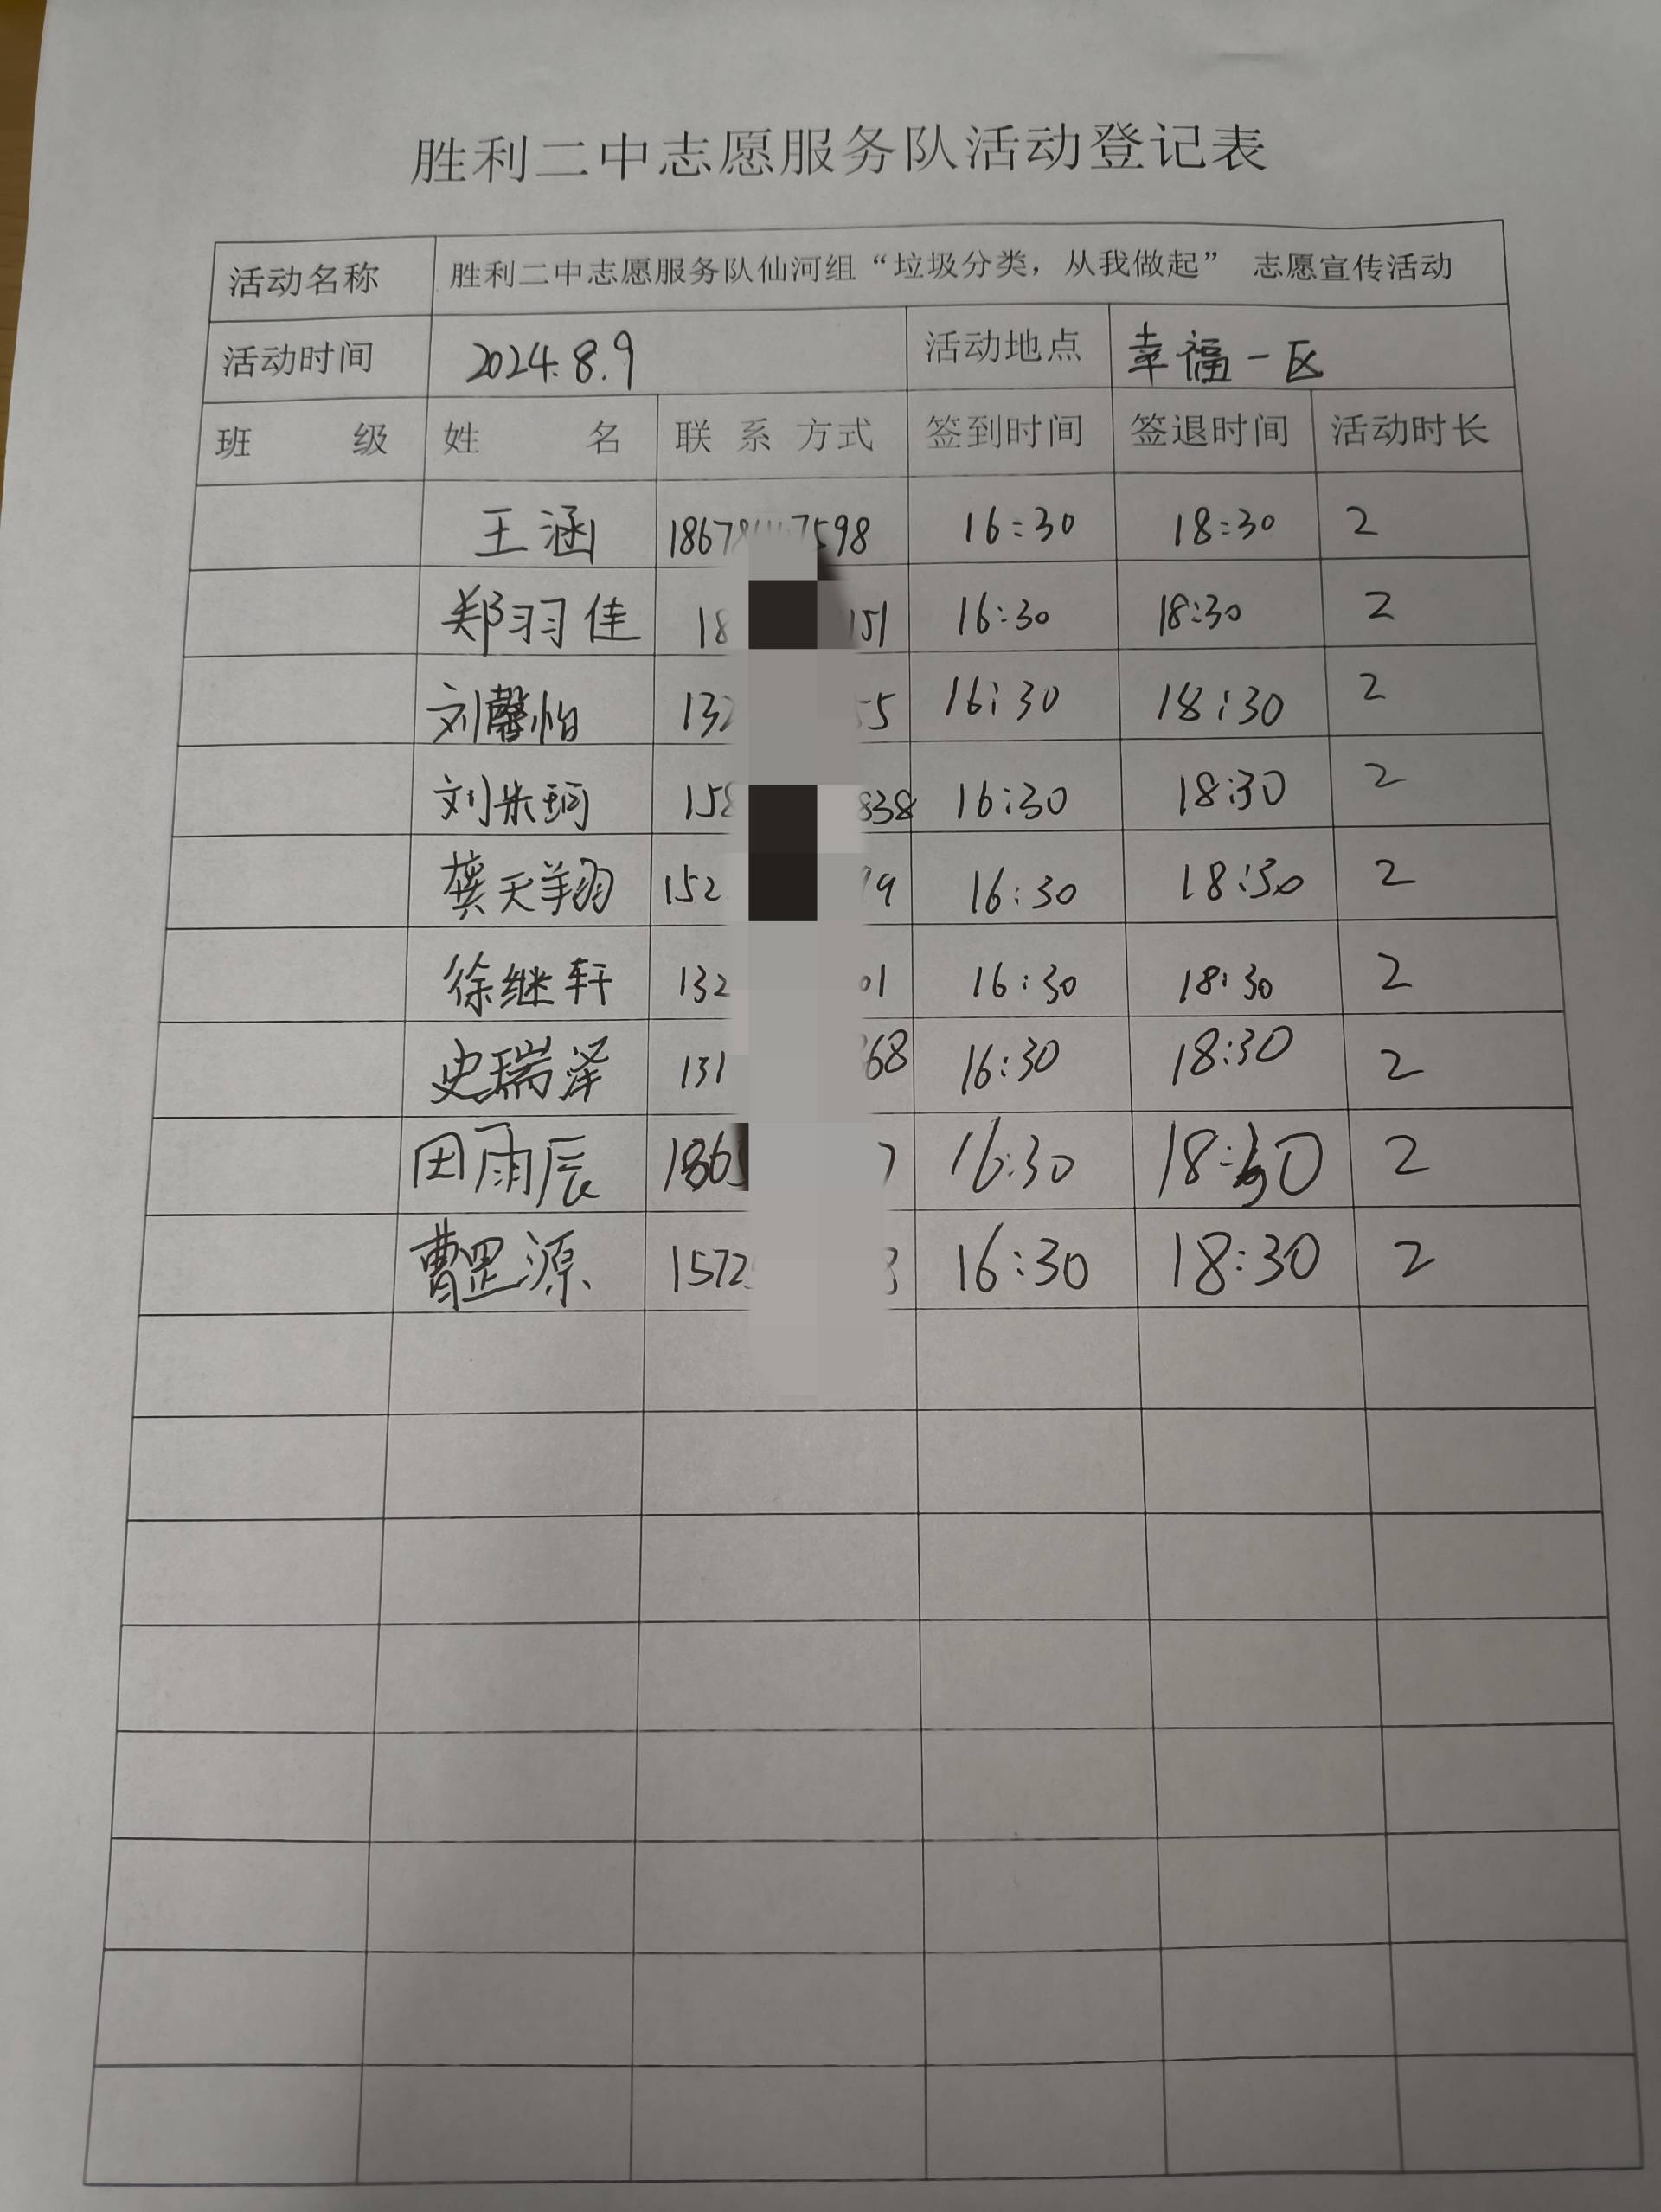 胜利二中志愿服务队活动登记表
活动名称 胜利二中志愿服务队仙河组“垃圾分类，从我做起” 志愿宣传活动
活动时间 2024.8.9 活动地点 幸福一区
班 级 姓 名 联 系 方式 签到时间 签退时间 活动时长
王涵 1867 598 16:30 18:30 2
郑羽佳 18 151 16:30 18:30 2
刘馨怡 132 55 16:30 18:30 2
刘朱珂 158 838 16:30 18:30 2
龚天翔 152 79 16:30 18:30 2
徐继轩 132 01 16:30 18:30 2
史瑞泽 131 68 16:30 18:30 2
田雨辰 1865 7 16:30 18:30 2
曹罡源 1572 3 16:30 18:30 2